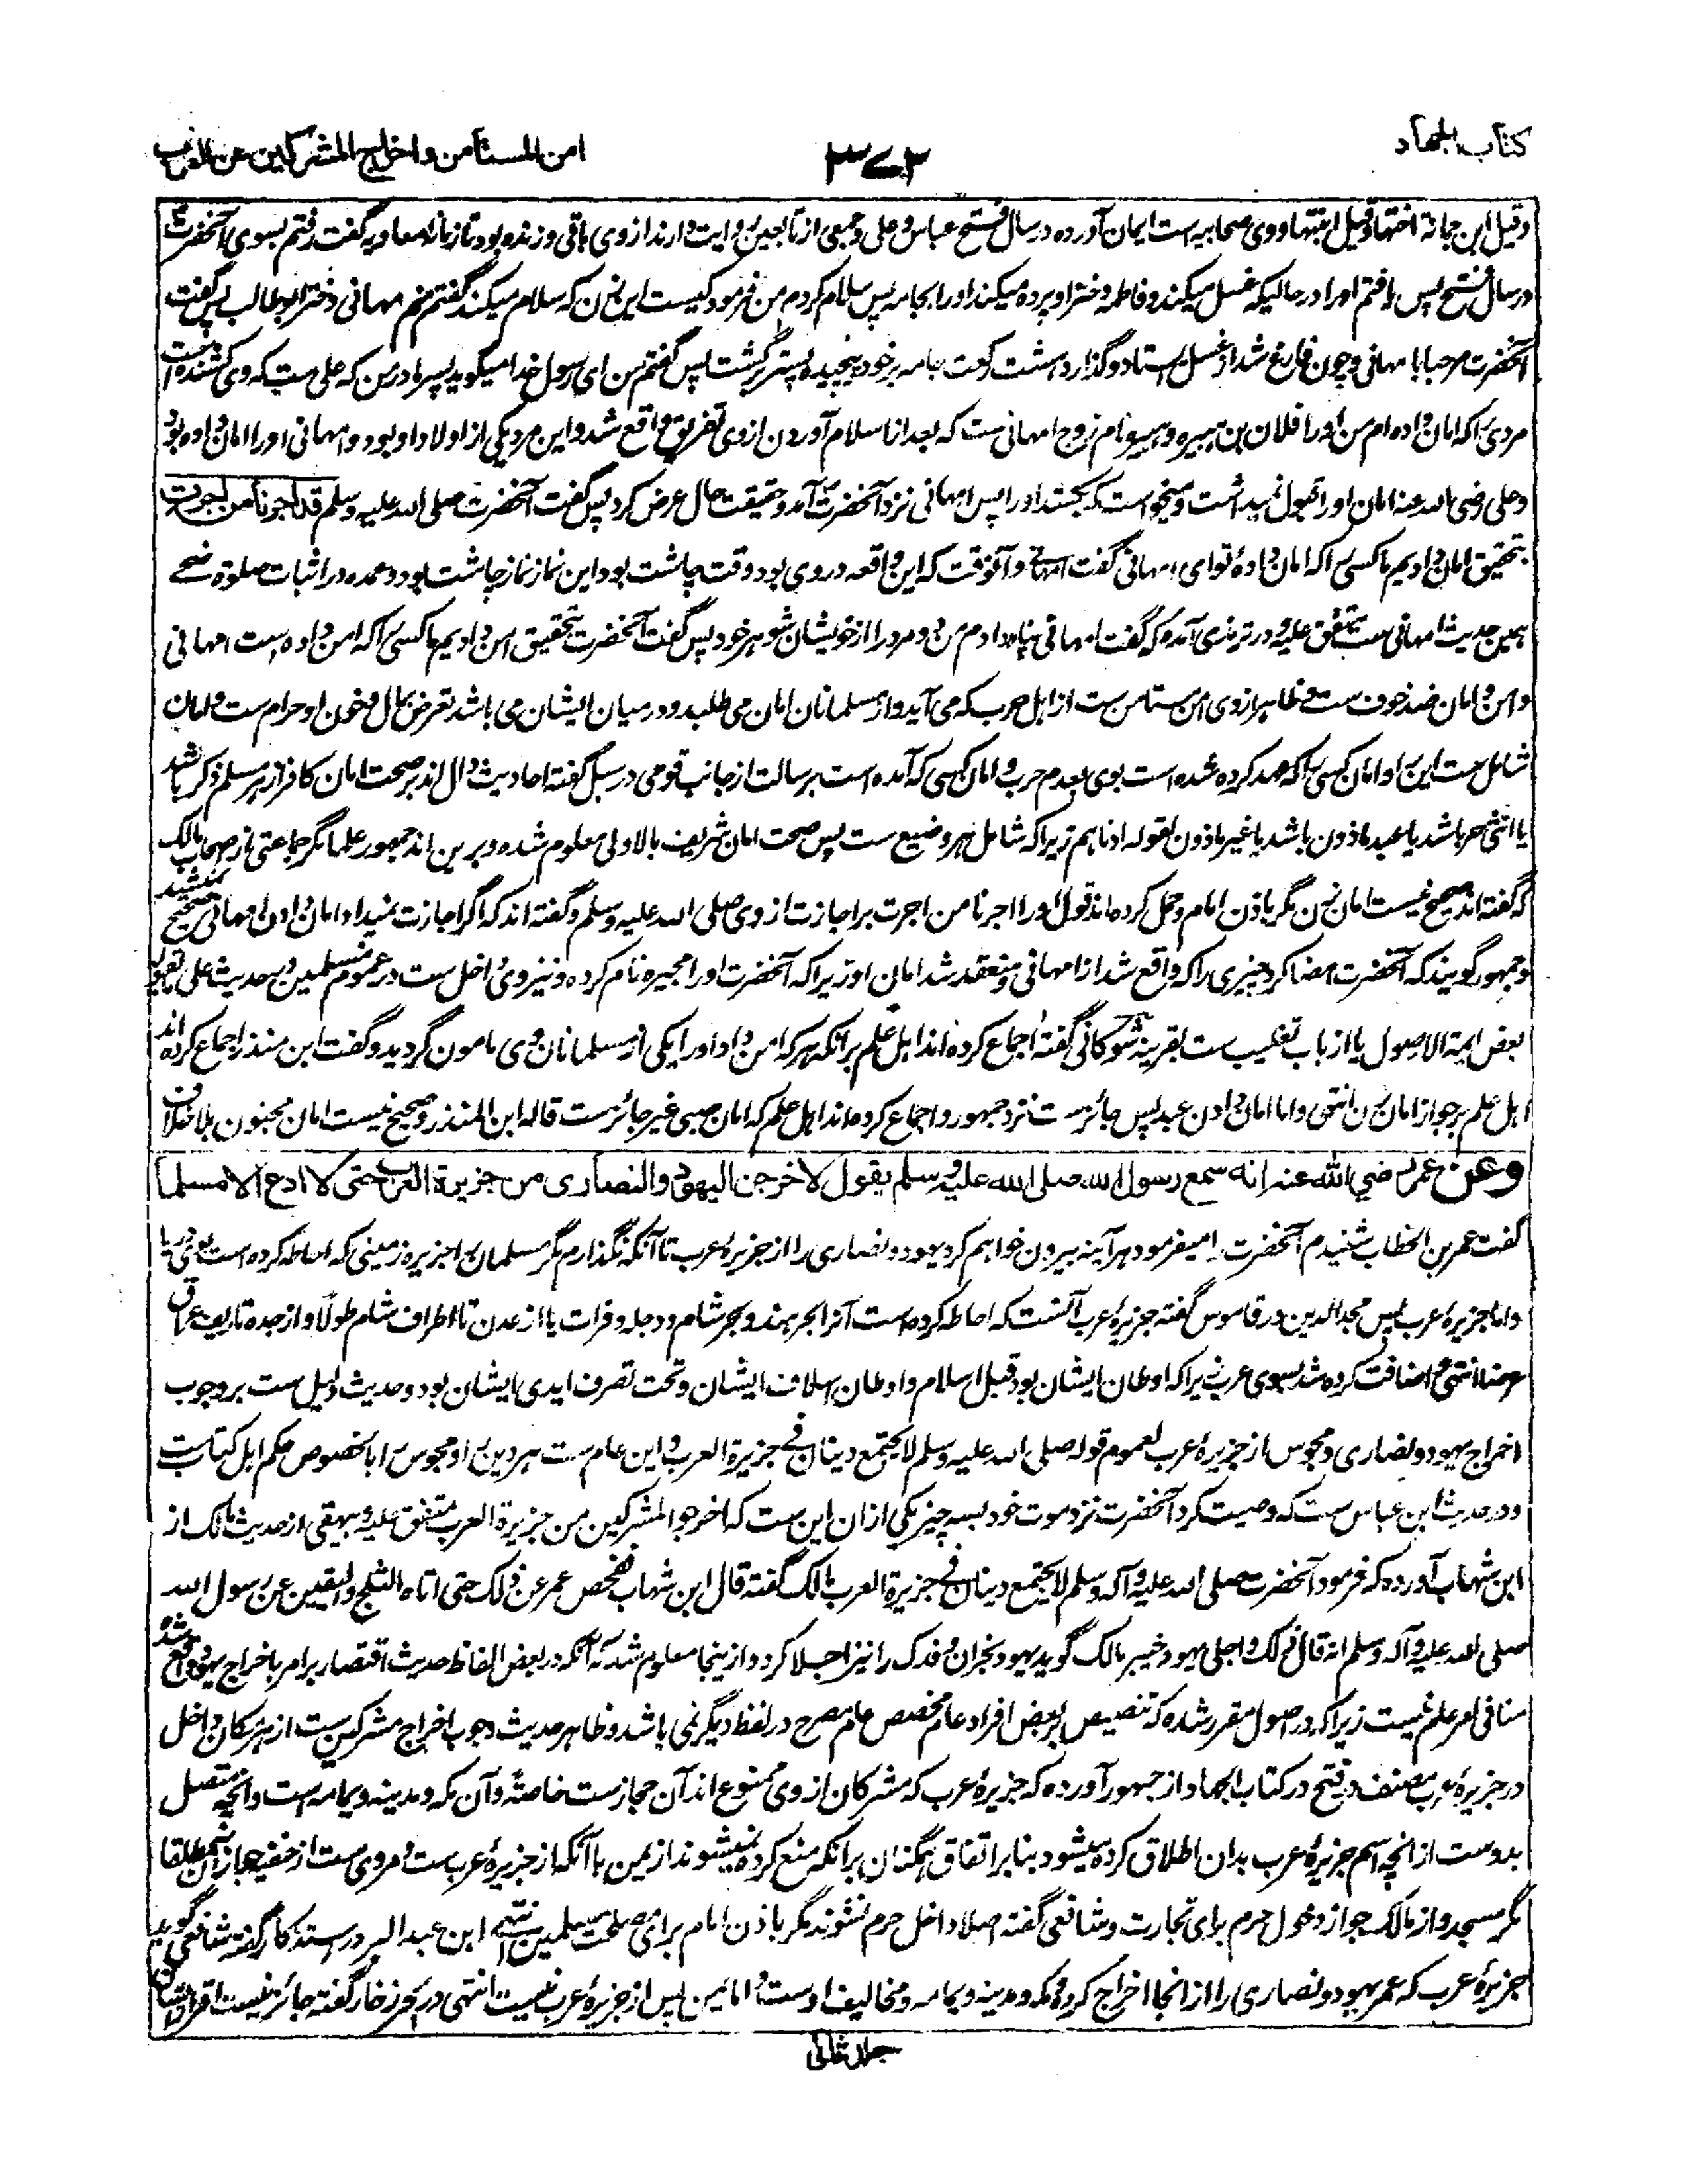 كتاب الجهاد
٣٧٢
امن المستأمن واخراج المشركين عن العرب
وقیل ابن جمانة اختها وقیل ابنتها ووی صحابیه است ایمان آورده در سال فتح عباس و علی و جمعی از تابعین روایت دارند از وی باقی و زنده بود تا زمانه معاویه گفت رفتم بسوی آنحضرت
در سال فتح پس یافتم او را در حالیکه غسل میکند و فاطمه دختر او پرده میکند او را بجامه پس سلام کردم من فرمود کیست این زن که سلام میکند گفتم منم ام هانی دختر ابوطالب پس گفت
آنحضرت مرحبا بام هانی و چون فارغ شد از غسل ایستاد و گذارد هشت رکعت جامه بر خود پیچیده پستر برگشت پس گفتم من ای رسول خدا میگوید پسر مادر من که علی ست که وی کشنده است
مردی را که امان داده ام من او را فلان بن هبیره و هبیره نام زوج ام هانی ست که بعد از اسلام آوردن از وی تفریق واقع شد و این مرد یکی از اولاد او بود و ام هانی او را امان داده بود
و علی رضی الله عنه امان او را قبول نمیداشت و میخواست که بکشد او را پس ام هانی نزد آنحضرت آمد و حقیقت حال عرض کرد پس گفت آنحضرت صلی الله علیه وسلم قد اجرنا من اجرت
بتحقیق امان دادیم ما کسی را که امان داده تو ای ام هانی گفت ام هانی و آنوقت که این واقعه در وی بود وقت چاشت بود این نماز نماز چاشت بود و عمده در اثبات صلوة ضحی
همین حدیث ام هانی ست متفق علیه و در ترمذی آمده که گفت ام هانی پناه دادم من دو مرد را از خویشان شوهر خود پس گفت آنحضرت بتحقیق امن دادیم ما کسی را که امن داده است ام هانی
و امن و امان ضد خوف ست و ظاهر از وی امن مستامن ست از اهل حرب که می آید و از مسلمانان امان می طلبد و در میان ایشان می باشد تعرض بمال و خون او حرام ست و امان
شامل ست این را و امان کسی را که عهد کرده شده است بوی بعدم حرب و امان کسی که آمده است برسالت از جانب قومی در سبل گفته احادیث دال اند بر صحت امان کافر از هر مسلم ذکر باشد
یا انثی حر باشد یا عبد ماذون باشد یا غیر ماذون لقوله ادناهم زیرا که شامل هر وضیع ست پس صحت امان شریف بالاولی معلوم شده و برین اند جمهور علما مگر جماعتی از اصحاب مالک
که گفته اند صحیح نیست امان زن مگر باذن امام و حمل کرده اند قول او را اجرنا من اجرت بر اجازت از وی صلی الله علیه وسلم و گفته اند که اگر اجازت نمیداد امان دادن ام هانی صحیح نمیشد
و جمهور گویند که آنحضرت امضا کرد چیزی را که واقع شد از ام هانی و منعقد شد امان او زیرا که آنحضرت او را مجیره نام کرده و نیز وی داخل ست در عموم مسلمین در حدیث علی
بعض ایمة الاصول یا از باب تغلیب ست بقرینه شوکانی گفته اجماع کرده اند اهل علم بر آنکه هر که امن داد او را یکی از مسلمانان وی مامون گردید و گفت ابن منذر اجماع کرده اند
اهل علم بر جواز امان زن انتهی و اما امان دادن عبد پس جائز ست نزد جمهور و اجماع کرده اند اهل علم که امان صبی غیر جائز ست قاله ابن المنذر و صحیح نیست امان مجنون بلا خلاف
وعن عمر رضي الله عنه انه سمع رسول الله صلى الله عليه وسلم يقول لاخرجن اليهود والنصارى من جزيرة العرب حتى لا ادع الا مسلما
گفت عمر بن الخطاب شنیدم آنحضرت را میفرمود هر آینه بیرون خواهم کرد یهود و نصاری را از جزیرۀ عرب تا آنکه نگذارم مگر مسلمان را جزیره زمینی که احاطه کرده است بوی دریا
و اما جزیرۀ عرب پس مجد الدین در قاموس گفته جزیرۀ عرب آنست که احاطه کرده است آنرا بحر هند و بحر شام و دجله و فرات یا از عدن تا اطراف شام طولا و از جده تا ریف عراق
عرضا انتهی و اضافت کرده شد بسوی عرب زیرا که اوطان ایشان بود قبل اسلام و اوطان اسلاف ایشان و تحت تصرف ایدی ایشان بود و حدیث دلیل ست بر وجوب
اخراج یهود و نصاری و مجوس از جزیرۀ عرب لعموم قوله صلی الله علیه وسلم لا یجتمع دینان فی جزیرة العرب و این عام ست هر دین را و مجوس را بالخصوص حکم اهل کتاب ست
و در حدیث ابن عباس ست که وصیت کرد آنحضرت نزد موت خود بسه چیز یکی از ان این ست که اخرجوا المشرکین من جزیرة العرب متفق علیه و بیهقی از حدیث مالک از
ابن شهاب آورده که فرمود آنحضرت صلی الله علیه وآله وسلم لا یجتمع دینان فی جزیرة العرب مالک گفته قال ابن شهاب ففحص عمر عن ذلک حتی اتاه الثلج والیقین عن رسول الله
صلی الله علیه وآله وسلم انه قال ذلک و اجلی یهود خیبر مالک گوید یهود نجران و فدک را نیز اجلا کرد و از ینجا معلوم شد که آنکه در بعض الفاظ حدیث اقتصار بر امر باخراج یهود واقع شده
منافی امر علم نیست زیرا که در اصول مقرر شده که تنصیص بر بعض افراد عام مخصص عام مصرح در لفظ دیگر نمی باشد و ظاهر حدیث وجوب اخراج مشرکین ست از هر مکان داخل
در جزیرۀ عرب مصنف در فتح در کتاب الجهاد از جمهور آورده که جزیرۀ عرب که مشرکان از وی ممنوع اند آن حجاز ست خاصة و آن مکه و مدینه و یمامه است و آنچه متصل
بدوست از آنچه اسم جزیرۀ عرب بدان اطلاق کرده میشود بنا بر اتفاق همگنان بر آنکه منع کرده نمیشوند از یمن با آنکه از جزیرۀ عرب ست و مروی ست از حنفیه جواز آن مطلقا
مگر مسجد و از مالک جواز دخول حرم برای تجارت و شافعی گفته اصلا داخل حرم نشوند مگر باذن امام برای مصلحت مسلمین انتهی ابن عبد البر در استذکار گفته شافعی گوید
جزیرۀ عرب که عمر یهود و نصاری را از انجا اخراج کرده مکه و مدینه و یمامه و مخالیف اوست و اما یمن پس از جزیرۀ عرب نیست انتهی در بحر زخار گفته جائز نیست اقرار ایشان
جلد ثانی